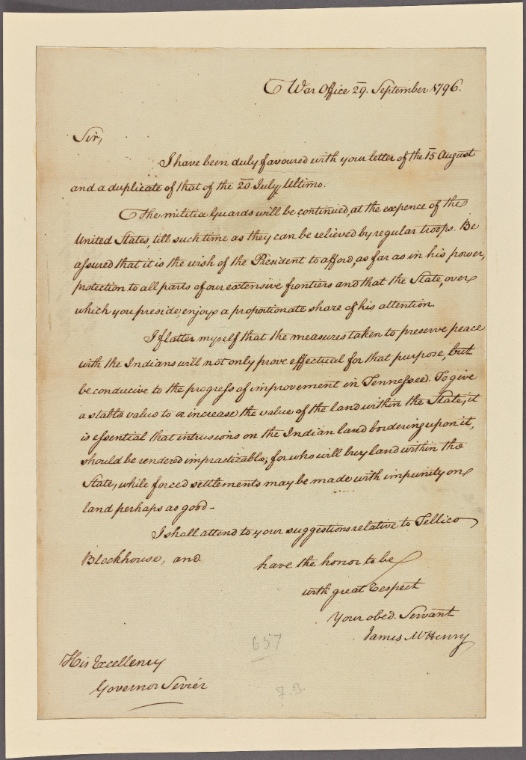 War Office 29. September 1796.
Sir,
I have been duly favoured with your letter of the 15 August
and a duplicate of that of the 20 July Ultimo.
The militia Guards will be continued, at the expence of the
United States, till such time as they can be relieved by regular troops. Be
assured that it is the wish of the President to afford, as far as in his power,
protection to all parts of our extensive frontiers and that the State, over
which you preside, enjoys a proportionate share of his attention.
I flatter myself that the measures taken to preserve peace
with the Indians will not only prove effectual for that purpose, but
be conducive to the progress of improvement in Tennessee. To give
a value to or increase the value of the land within the State, it
is essential that intrusions on the Indian land bordering upon it,
should be rendered impracticable; for who will buy land within the
State, while forced settlements may be made with impunity on
land perhaps as good.
I shall attend to your suggestions relative to Tellico
Blockhouse, and have the honor to be
with great respect
Your obed. Servant
James McHenry
657
His Excellency
Governor Sevier